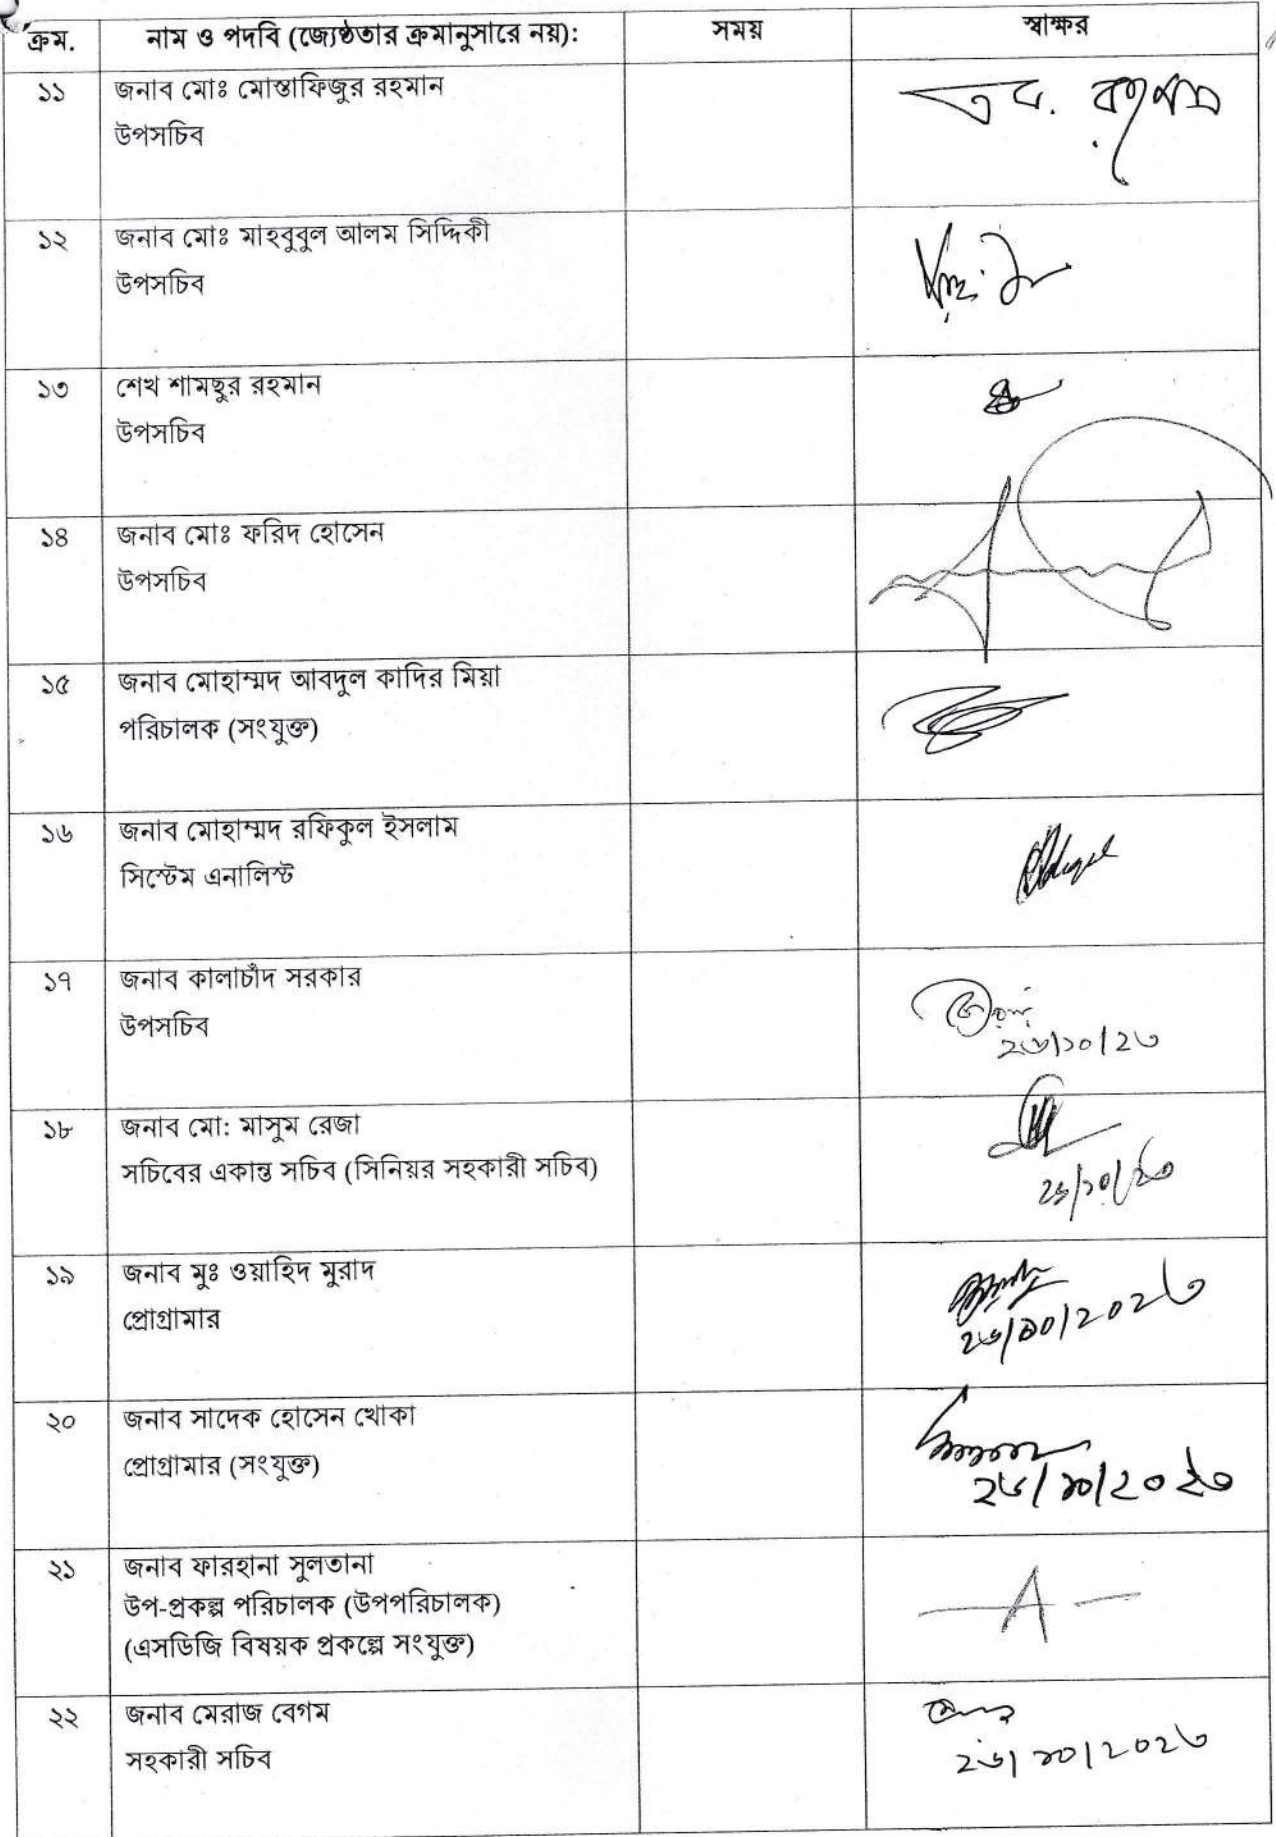 ক্রম. নাম ও পদবি (জ্যেষ্ঠতার ক্রমানুসারে নয়): সময় স্বাক্ষর
১১ জনাব মোঃ মোস্তাফিজুর রহমান
উপসচিব
১২ জনাব মোঃ মাহবুবুল আলম সিদ্দিকী
উপসচিব
১৩ শেখ শামছুর রহমান
উপসচিব
১৪ জনাব মোঃ ফরিদ হোসেন
উপসচিব
১৫ জনাব মোহাম্মদ আবদুল কাদির মিয়া
পরিচালক (সংযুক্ত)
১৬ জনাব মোহাম্মদ রফিকুল ইসলাম
সিস্টেম এনালিস্ট
১৭ জনাব কালাচাঁদ সরকার
উপসচিব
২৬/১০/২৩
১৮ জনাব মো: মাসুম রেজা
সচিবের একান্ত সচিব (সিনিয়র সহকারী সচিব)
২৬/১০/২৩
১৯ জনাব মুঃ ওয়াহিদ মুরাদ
প্রোগ্রামার
২৬/১০/২০২৩
২০ জনাব সাদেক হোসেন খোকা
প্রোগ্রামার (সংযুক্ত)
২৬/১০/২০২৩
২১ জনাব ফারহানা সুলতানা
উপ-প্রকল্প পরিচালক (উপপরিচালক)
(এসডিজি বিষয়ক প্রকল্পে সংযুক্ত)
—A—
২২ জনাব মেরাজ বেগম
সহকারী সচিব
২৬/১০/২০২৩